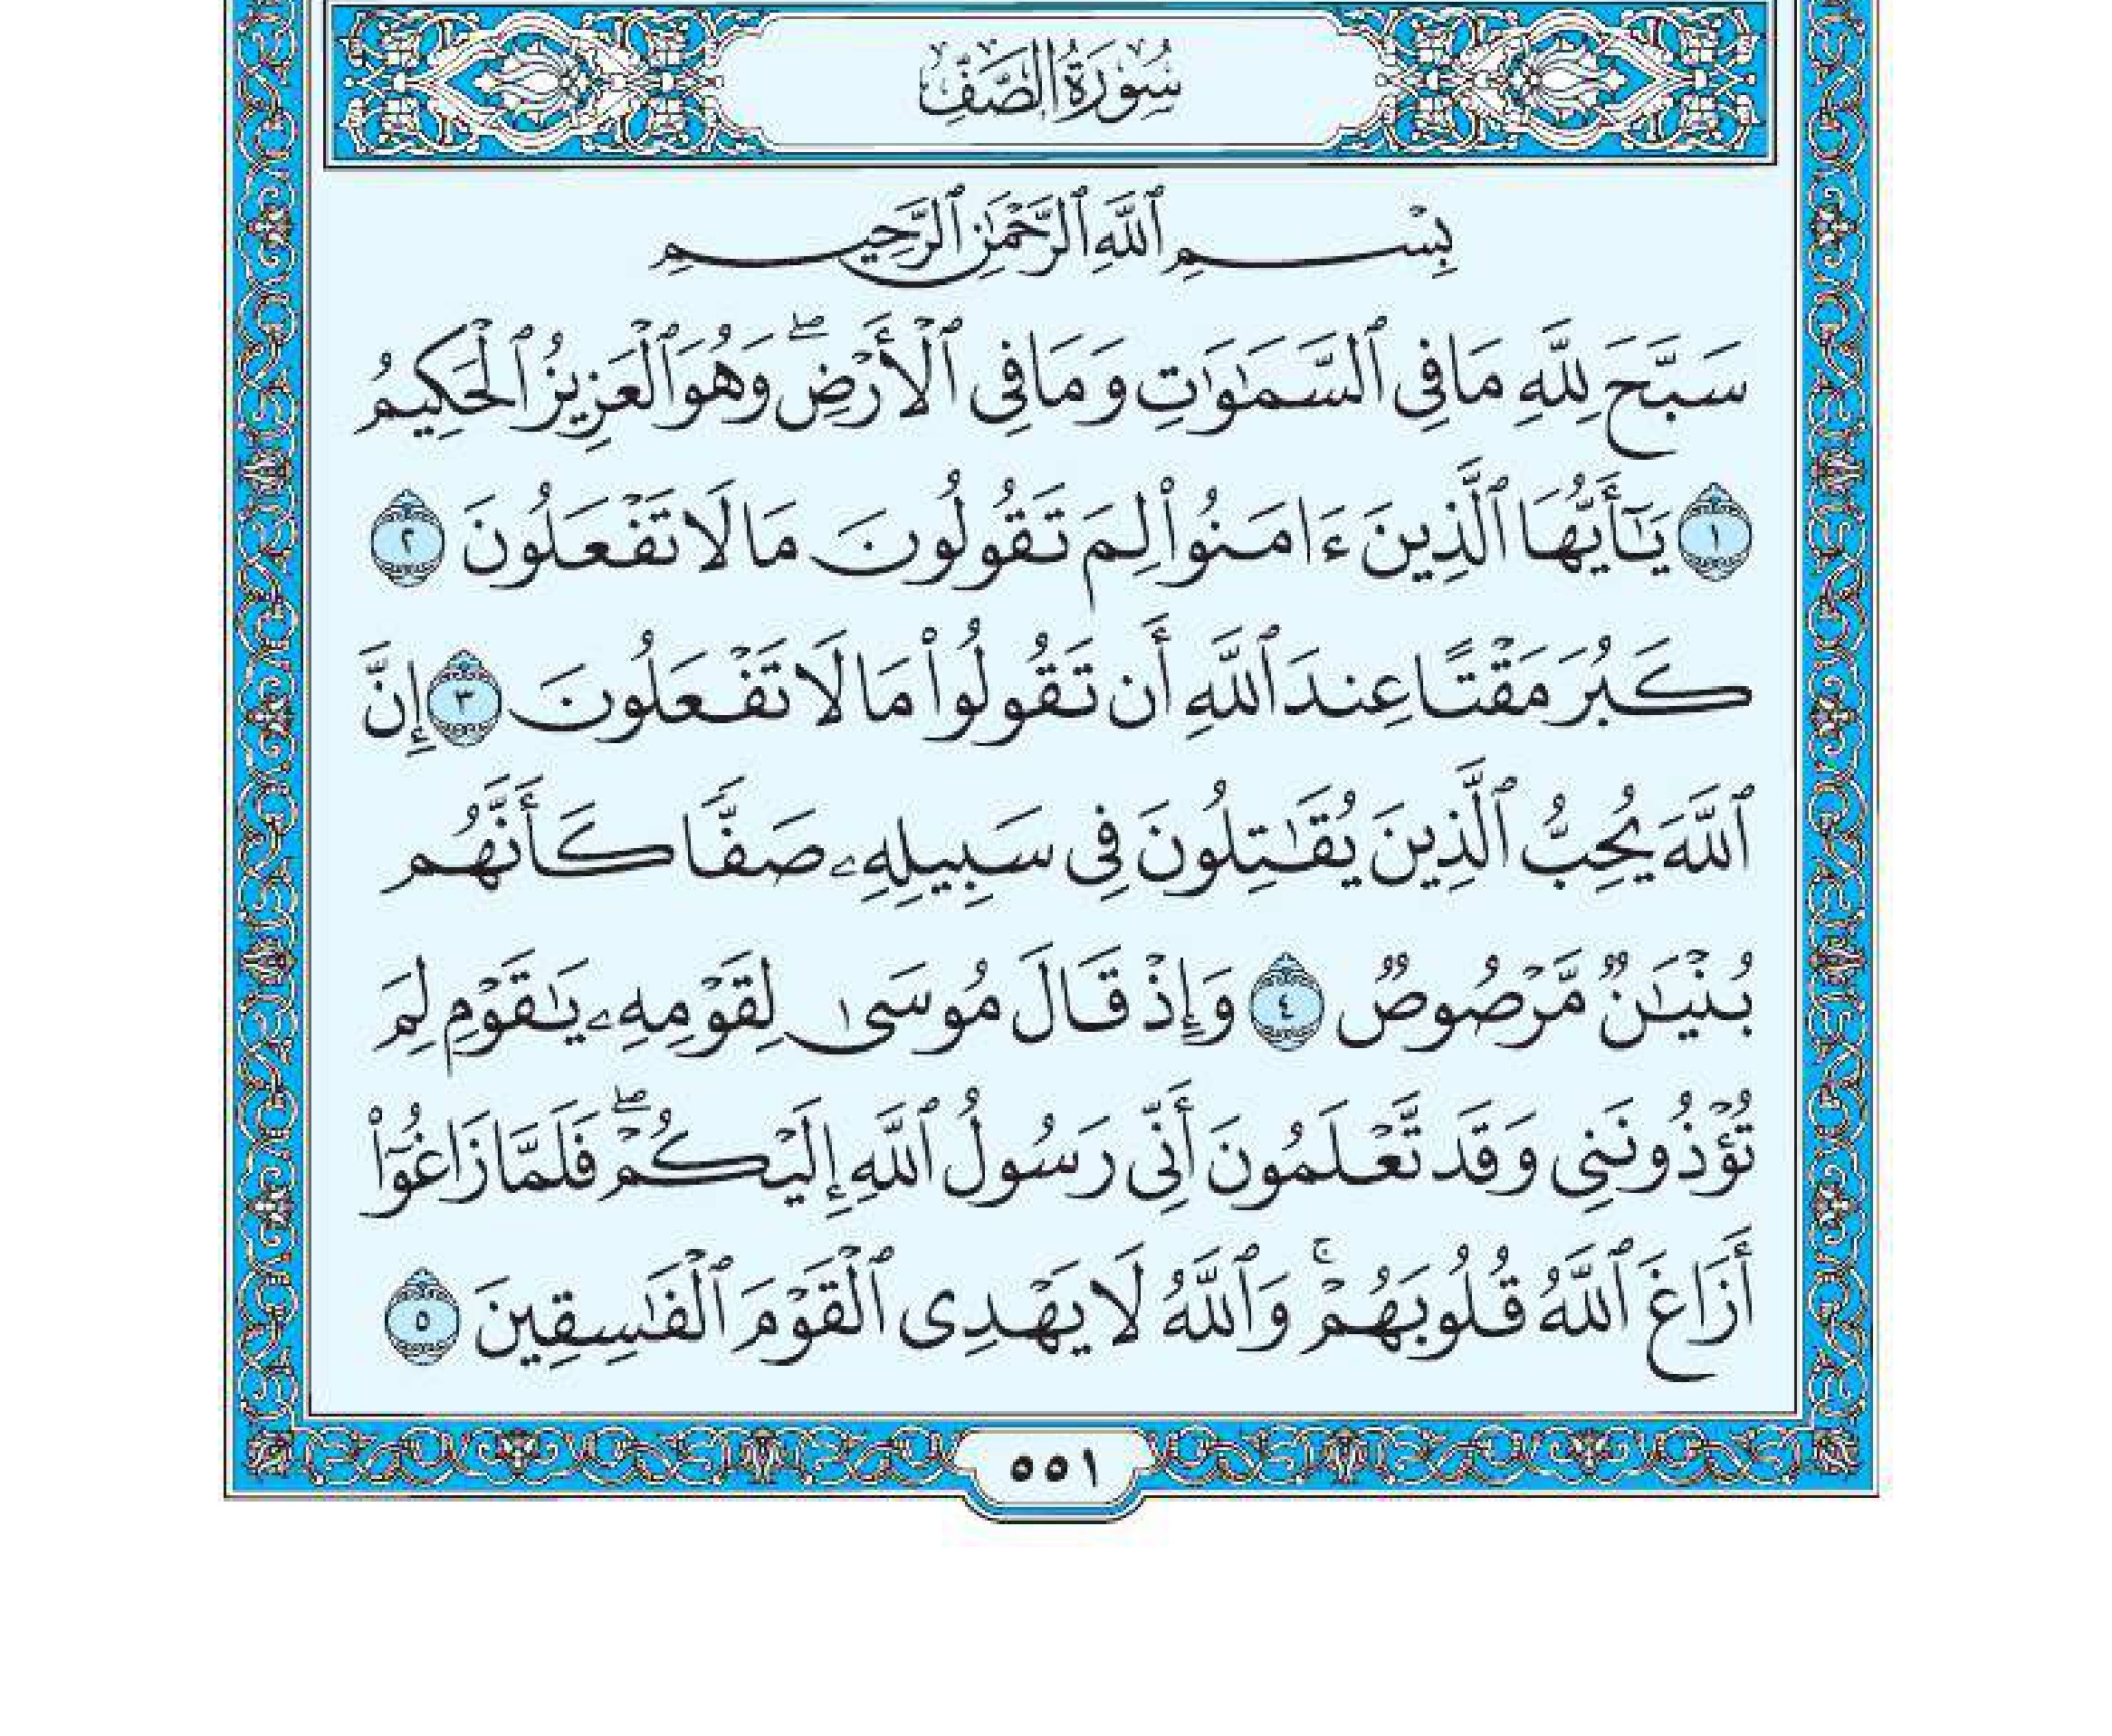 سُورَةُ الصَّفِّ
بِسْمِ ٱللَّهِ ٱلرَّحْمَٰنِ ٱلرَّحِيمِ
سَبَّحَ لِلَّهِ مَا فِى ٱلسَّمَٰوَٰتِ وَمَا فِى ٱلْأَرْضِۖ وَهُوَ ٱلْعَزِيزُ ٱلْحَكِيمُ
١ يَٰٓأَيُّهَا ٱلَّذِينَ ءَامَنُوا۟ لِمَ تَقُولُونَ مَا لَا تَفْعَلُونَ ٢
كَبُرَ مَقْتًا عِندَ ٱللَّهِ أَن تَقُولُوا۟ مَا لَا تَفْعَلُونَ ٣ إِنَّ
ٱللَّهَ يُحِبُّ ٱلَّذِينَ يُقَٰتِلُونَ فِى سَبِيلِهِۦ صَفًّا كَأَنَّهُم
بُنْيَٰنٌ مَّرْصُوصٌ ٤ وَإِذْ قَالَ مُوسَىٰ لِقَوْمِهِۦ يَٰقَوْمِ لِمَ
تُؤْذُونَنِى وَقَد تَّعْلَمُونَ أَنِّى رَسُولُ ٱللَّهِ إِلَيْكُمْۖ فَلَمَّا زَاغُوٓا۟
أَزَاغَ ٱللَّهُ قُلُوبَهُمْۚ وَٱللَّهُ لَا يَهْدِى ٱلْقَوْمَ ٱلْفَٰسِقِينَ ٥
٥٥١